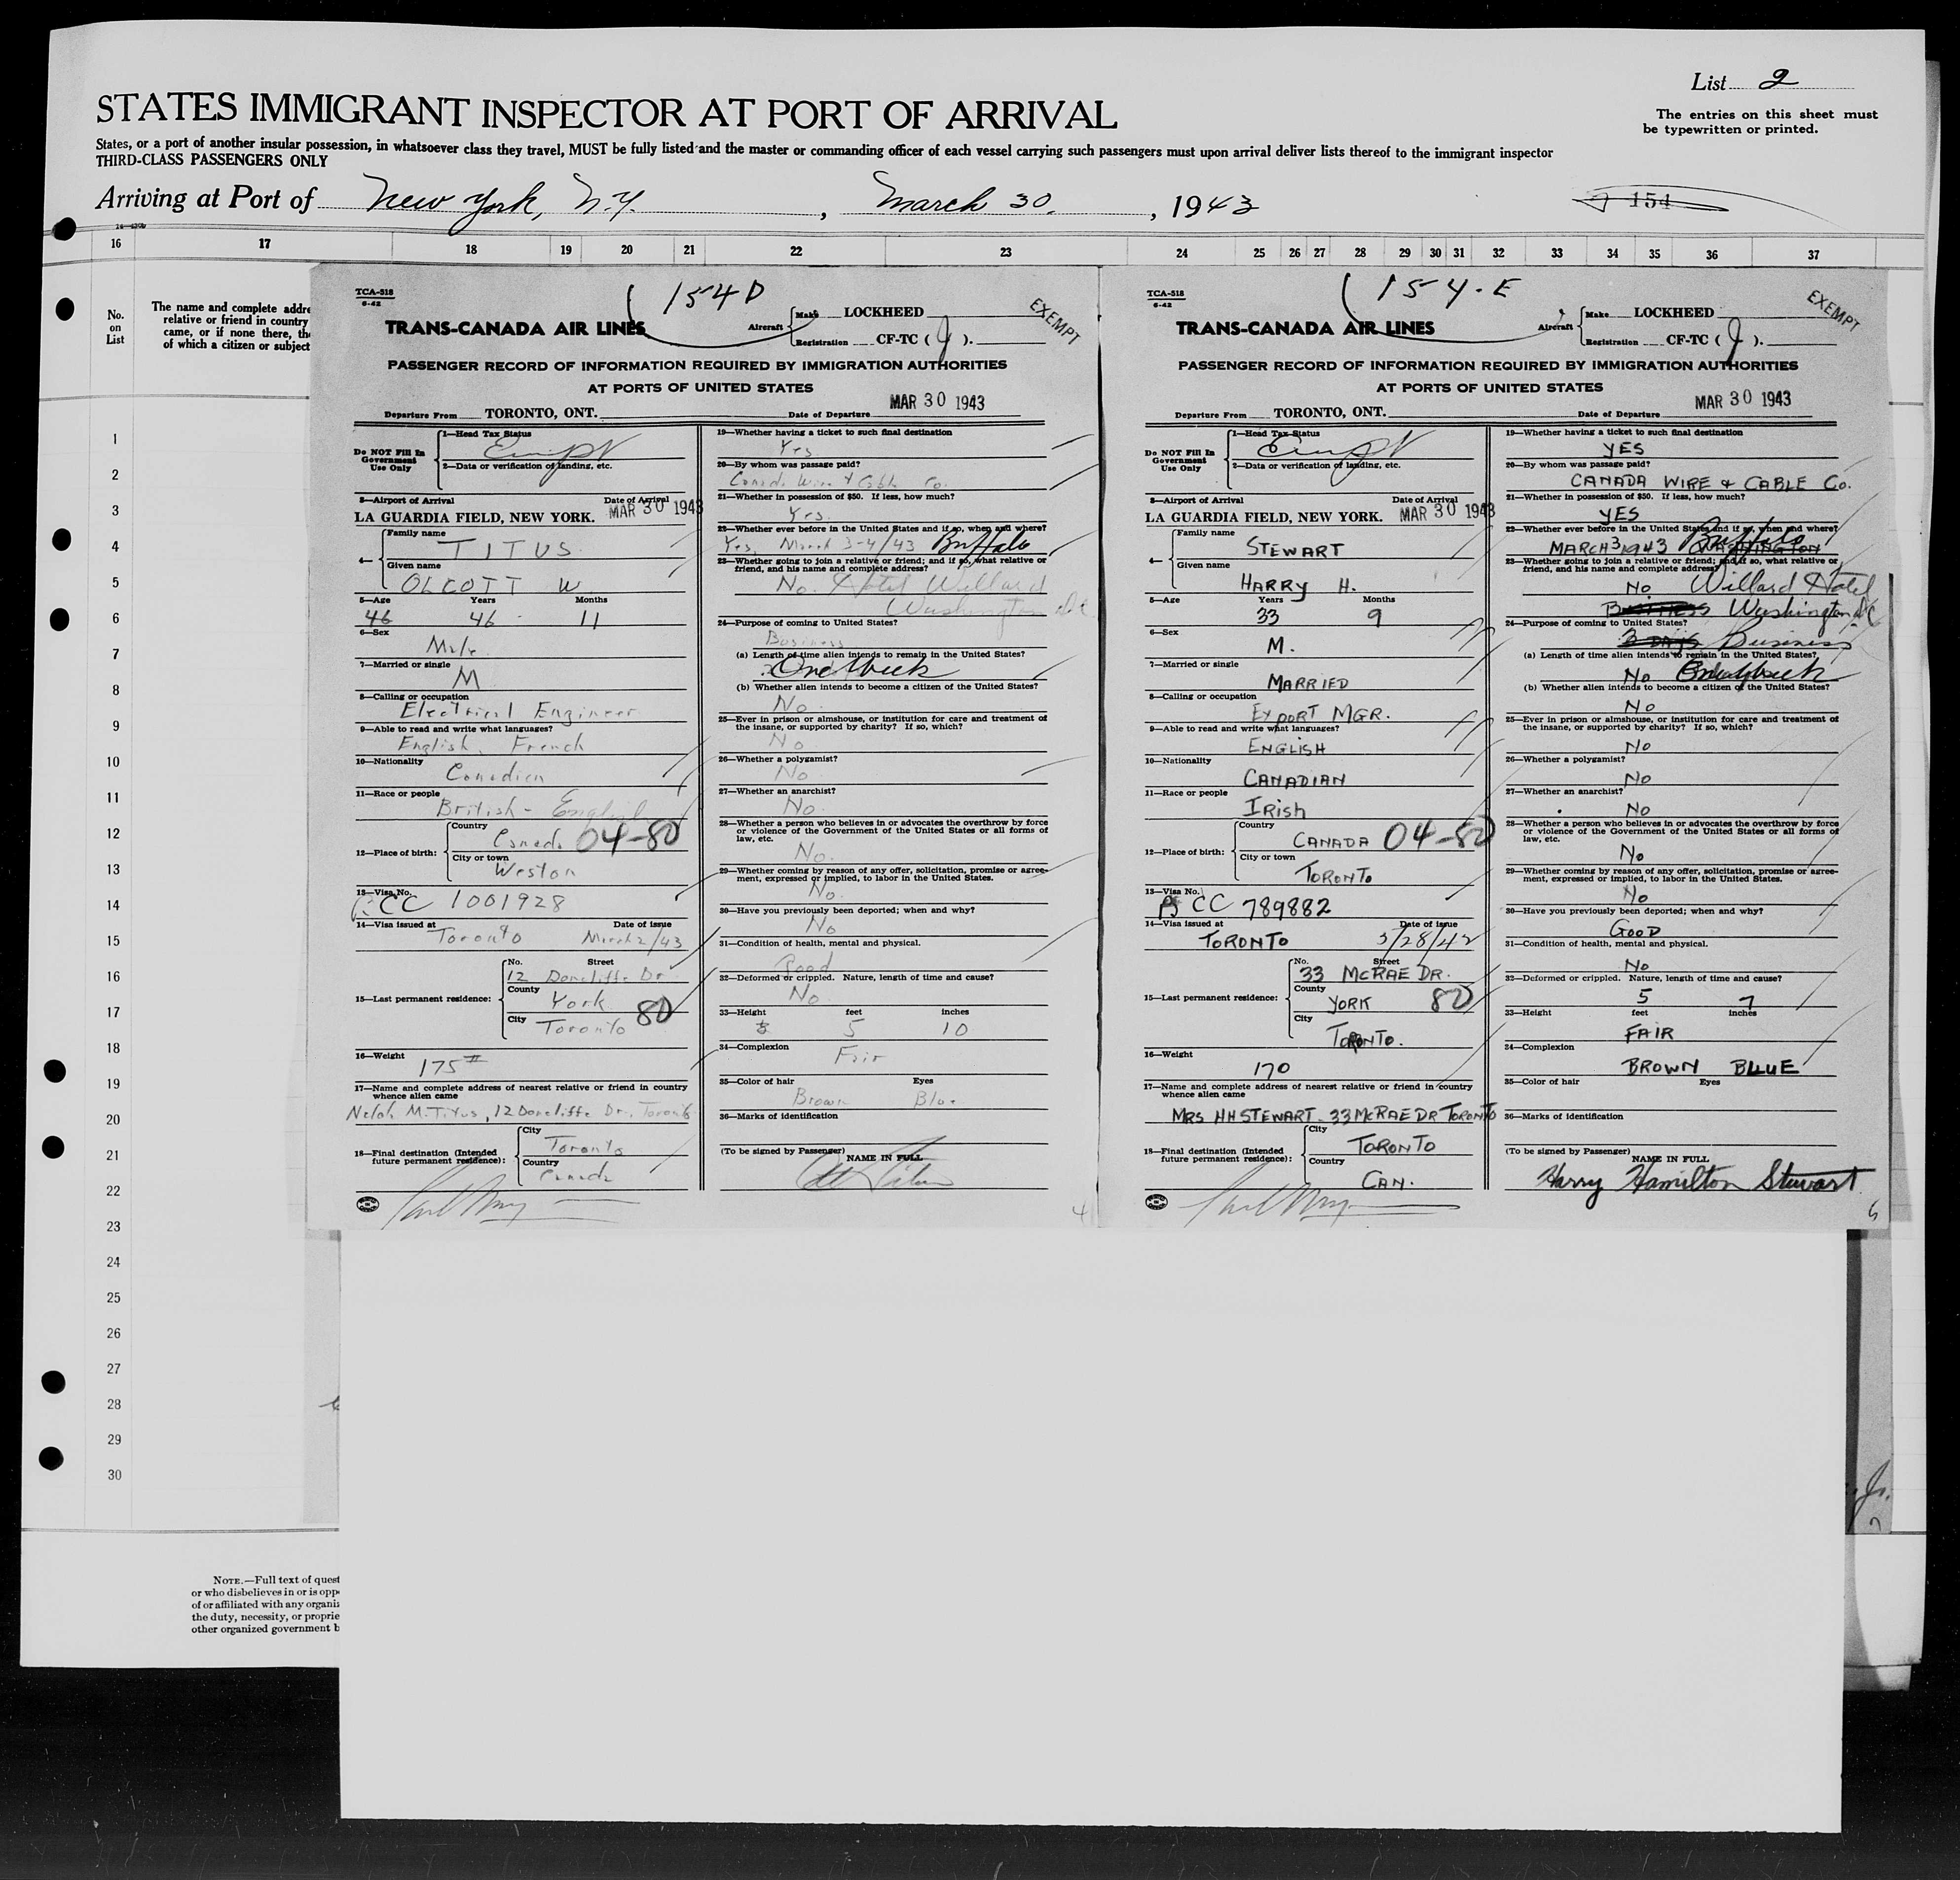 List 2
STATES IMMIGRANT INSPECTOR AT PORT OF ARRIVAL
The entries on this sheet must
be typewritten or printed.
States, or a port of another insular possession, in whatsoever class they travel, MUST be fully listed and the master or commanding officer of each vessel carrying such passengers must upon arrival deliver lists thereof to the immigrant inspector
THIRD-CLASS PASSENGERS ONLY
Arriving at Port of New York, N.Y. , March 30. , 1943
154
16 17 18 19 20 21 22 23 24 25 26 27 28 29 30 31 32 33 34 35 36 37
No.
on
List
The name and complete addre
relative or friend in country
came, or if none there, th
of which a citizen or subject
1
2
3
4
5
6
7
8
9
10
11
12
13
14
15
16
17
18
19
20
21
22
23
24
25
26
27
28
29
30
NOTE.—Full text of quest
or who disbelieves in or is opp
of or affiliated with any organi
the duty, necessity, or proprie
other organized government b
TCA-518
6-42
154D
TRANS-CANADA AIR LINES
Aircraft
Make LOCKHEED
Registration CF-TC ( J ).
EXEMPT
PASSENGER RECORD OF INFORMATION REQUIRED BY IMMIGRATION AUTHORITIES
AT PORTS OF UNITED STATES
Departure From TORONTO, ONT. Date of Departure MAR 30 1943
Do NOT Fill In
Government
Use Only
1—Head Tax Status
2—Data or verification of landing, etc.
3—Airport of Arrival Date of Arrival
LA GUARDIA FIELD, NEW YORK. MAR 30 1943
4—
Family name
TITUS
Given name
OLCOTT W.
5—Age Years Months
46 46 11
6—Sex
Male
7—Married or single
M
8—Calling or occupation
Electrical Engineer
9—Able to read and write what languages?
English, French
10—Nationality
Canadian
11—Race or people
British - English
12—Place of birth:
Country
Canada 04-80
City or town
Weston
13—Visa No.
CC 1001928
14—Visa issued at Date of issue
Toronto March 2/43
15—Last permanent residence:
No. Street
12 Doncliffe Dr.
County
York 80
City
Toronto
16—Weight
175
17—Name and complete address of nearest relative or friend in country
whence alien came
M. Titus, 12 Doncliffe Dr., Toronto
18—Final destination (Intended
future permanent residence):
City
Toronto
Country
Canada
19—Whether having a ticket to such final destination
Yes
20—By whom was passage paid?
Canada Wire & Cable Co.
21—Whether in possession of $50. If less, how much?
Yes.
22—Whether ever before in the United States and if so, when and where?
Yes, March 3-4/43 Buffalo
23—Whether going to join a relative or friend; and if so, what relative or
friend, and his name and complete address?
No. Hotel Willard
Washington DC
24—Purpose of coming to United States?
Business
(a) Length of time alien intends to remain in the United States?
One Week
(b) Whether alien intends to become a citizen of the United States?
No.
25—Ever in prison or almshouse, or institution for care and treatment of
the insane, or supported by charity? If so, which?
No
26—Whether a polygamist?
No
27—Whether an anarchist?
No.
28—Whether a person who believes in or advocates the overthrow by force
or violence of the Government of the United States or all forms of
law, etc.
No.
29—Whether coming by reason of any offer, solicitation, promise or agree-
ment, expressed or implied, to labor in the United States.
No.
30—Have you previously been deported; when and why?
No
31—Condition of health, mental and physical.
Good
32—Deformed or crippled. Nature, length of time and cause?
No
33—Height feet inches
5 10
34—Complexion
Fair
35—Color of hair Eyes
Brown Blue
36—Marks of identification
(To be signed by Passenger) NAME IN FULL
4
TCA-518
6-42
154-E
TRANS-CANADA AIR LINES
Aircraft
Make LOCKHEED
Registration CF-TC ( J ).
EXEMPT
PASSENGER RECORD OF INFORMATION REQUIRED BY IMMIGRATION AUTHORITIES
AT PORTS OF UNITED STATES
Departure From TORONTO, ONT. Date of Departure MAR 30 1943
Do NOT Fill In
Government
Use Only
1—Head Tax Status
2—Data or verification of landing, etc.
3—Airport of Arrival Date of Arrival
LA GUARDIA FIELD, NEW YORK. MAR 30 1943
4—
Family name
STEWART
Given name
HARRY H.
5—Age Years Months
33 9
6—Sex
M.
7—Married or single
MARRIED
8—Calling or occupation
EXPORT MGR.
9—Able to read and write what languages?
ENGLISH
10—Nationality
CANADIAN
11—Race or people
IRISH
12—Place of birth:
Country
CANADA 04-80
City or town
TORONTO
13—Visa No.
CC 789882
14—Visa issued at Date of issue
TORONTO 5/28/42
15—Last permanent residence:
No. Street
33 MCRAE DR.
County
YORK 80
City
TORONTO.
16—Weight
170
17—Name and complete address of nearest relative or friend in country
whence alien came
MRS HH STEWART - 33 MCRAE DR TORONTO
18—Final destination (Intended
future permanent residence):
City
TORONTO
Country
CAN.
19—Whether having a ticket to such final destination
YES
20—By whom was passage paid?
CANADA WIRE & CABLE CO.
21—Whether in possession of $50. If less, how much?
YES
22—Whether ever before in the United States and if so, when and where?
MARCH 3 1943 WASHINGTON Buffalo
23—Whether going to join a relative or friend; and if so, what relative or
friend, and his name and complete address?
No Willard Hotel
BUSINESS Washington DC
24—Purpose of coming to United States?
3 DAYS Business
(a) Length of time alien intends to remain in the United States?
No One Week
(b) Whether alien intends to become a citizen of the United States?
No
25—Ever in prison or almshouse, or institution for care and treatment of
the insane, or supported by charity? If so, which?
No
26—Whether a polygamist?
No
27—Whether an anarchist?
No
28—Whether a person who believes in or advocates the overthrow by force
or violence of the Government of the United States or all forms of
law, etc.
No
29—Whether coming by reason of any offer, solicitation, promise or agree-
ment, expressed or implied, to labor in the United States.
No
30—Have you previously been deported; when and why?
GOOD
31—Condition of health, mental and physical.
No
32—Deformed or crippled. Nature, length of time and cause?
5 7
33—Height feet inches
FAIR
34—Complexion
BROWN BLUE
35—Color of hair Eyes
36—Marks of identification
(To be signed by Passenger) NAME IN FULL
Harry Hamilton Stewart